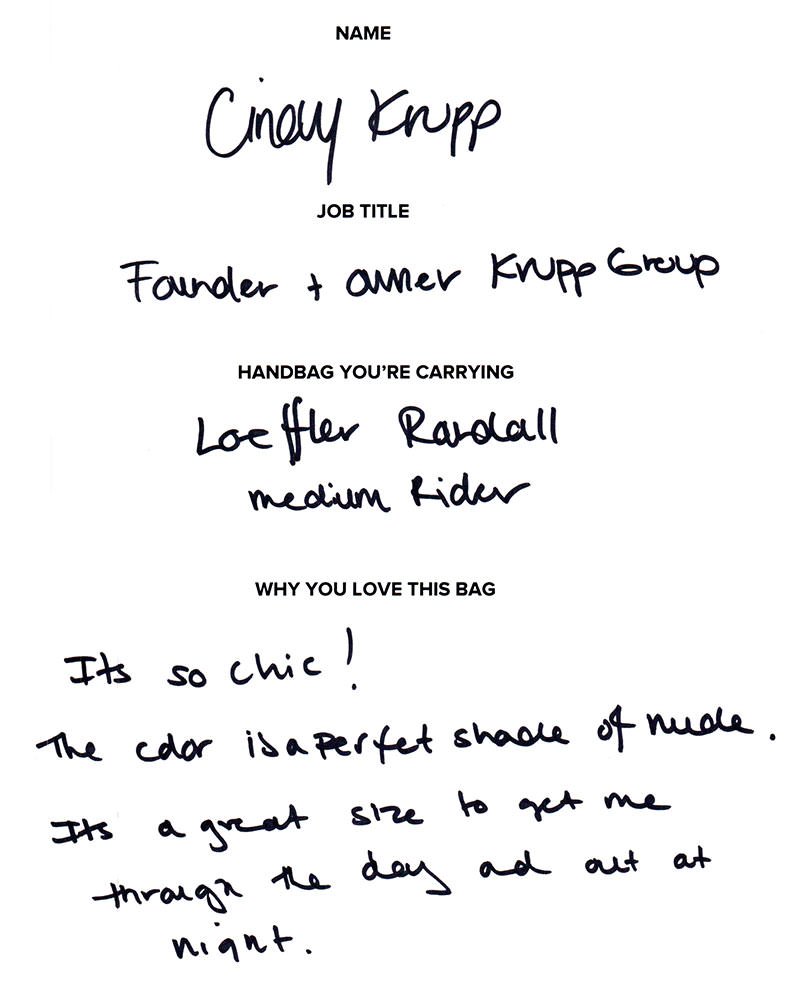 NAME
Cindy Krupp
JOB TITLE
Founder + owner Krupp Group
HANDBAG YOU'RE CARRYING
Loeffler Randall
medium Rider
WHY YOU LOVE THIS BAG
Its so chic!
The color is a perfet shade of nude.
Its a great size to get me
through the day ad out at
night.